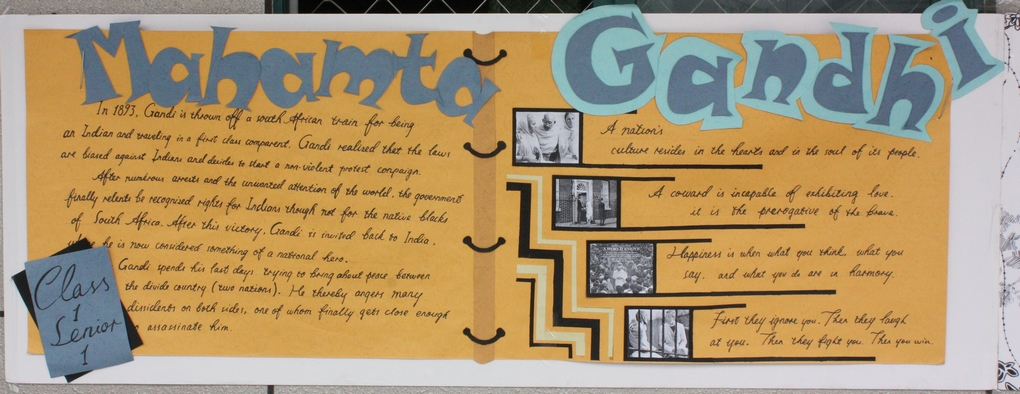 Mahamta Gandhi
In 1893, Gandi is thrown off a south African train for being
an Indian and traveling in a first class compartment. Gandi realised that the laws
are biased against Indians and decides to start a non-violent protest campaign.
After numerous arrests and the unwanted attention of the world, the government
finally relents be recognised rights for Indians though not for the native blacks
of South Africa. After this victory, Gandi is invited back to India.
he is now considered something of a national hero.
Gandhi spends his last days trying to bring about peace between
the divide country (two nations). He thereby angers many
dissidents on both sides, one of whom finally gets close enough
assassinate him.
Class
1
Senior
1
A nation's
culture resides in the hearts and in the soul of its people.
A coward is incapable of exhibiting love.
it is the prerogative of the brave.
Happiness is when what you think, what you
say, and what you do are in harmony.
First they ignore you. Then they laugh
at you. Then they fight you. Then you win.